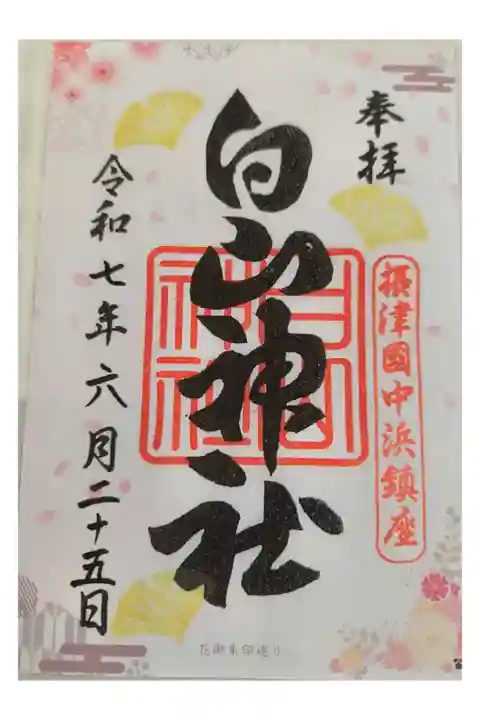 奉拝
摂津國中浜鎮座
白山神社
白山神社
令和七年六月二十五日
花御朱印巡り